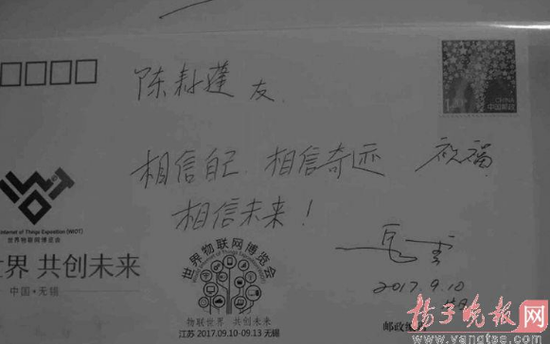 陈 友
相信自己、相信奇迹 祝福
相信未来！
马云
2017.9.10
中国邮政
Internet of Things Exposition (WIOT)
世界物联网博览会
世界 共创未来
中国·无锡
世界物联网博览会
物联世界 共创未来
江苏 2017.09.10-09.13 无锡
扬子晚报网
www.yangtse.com